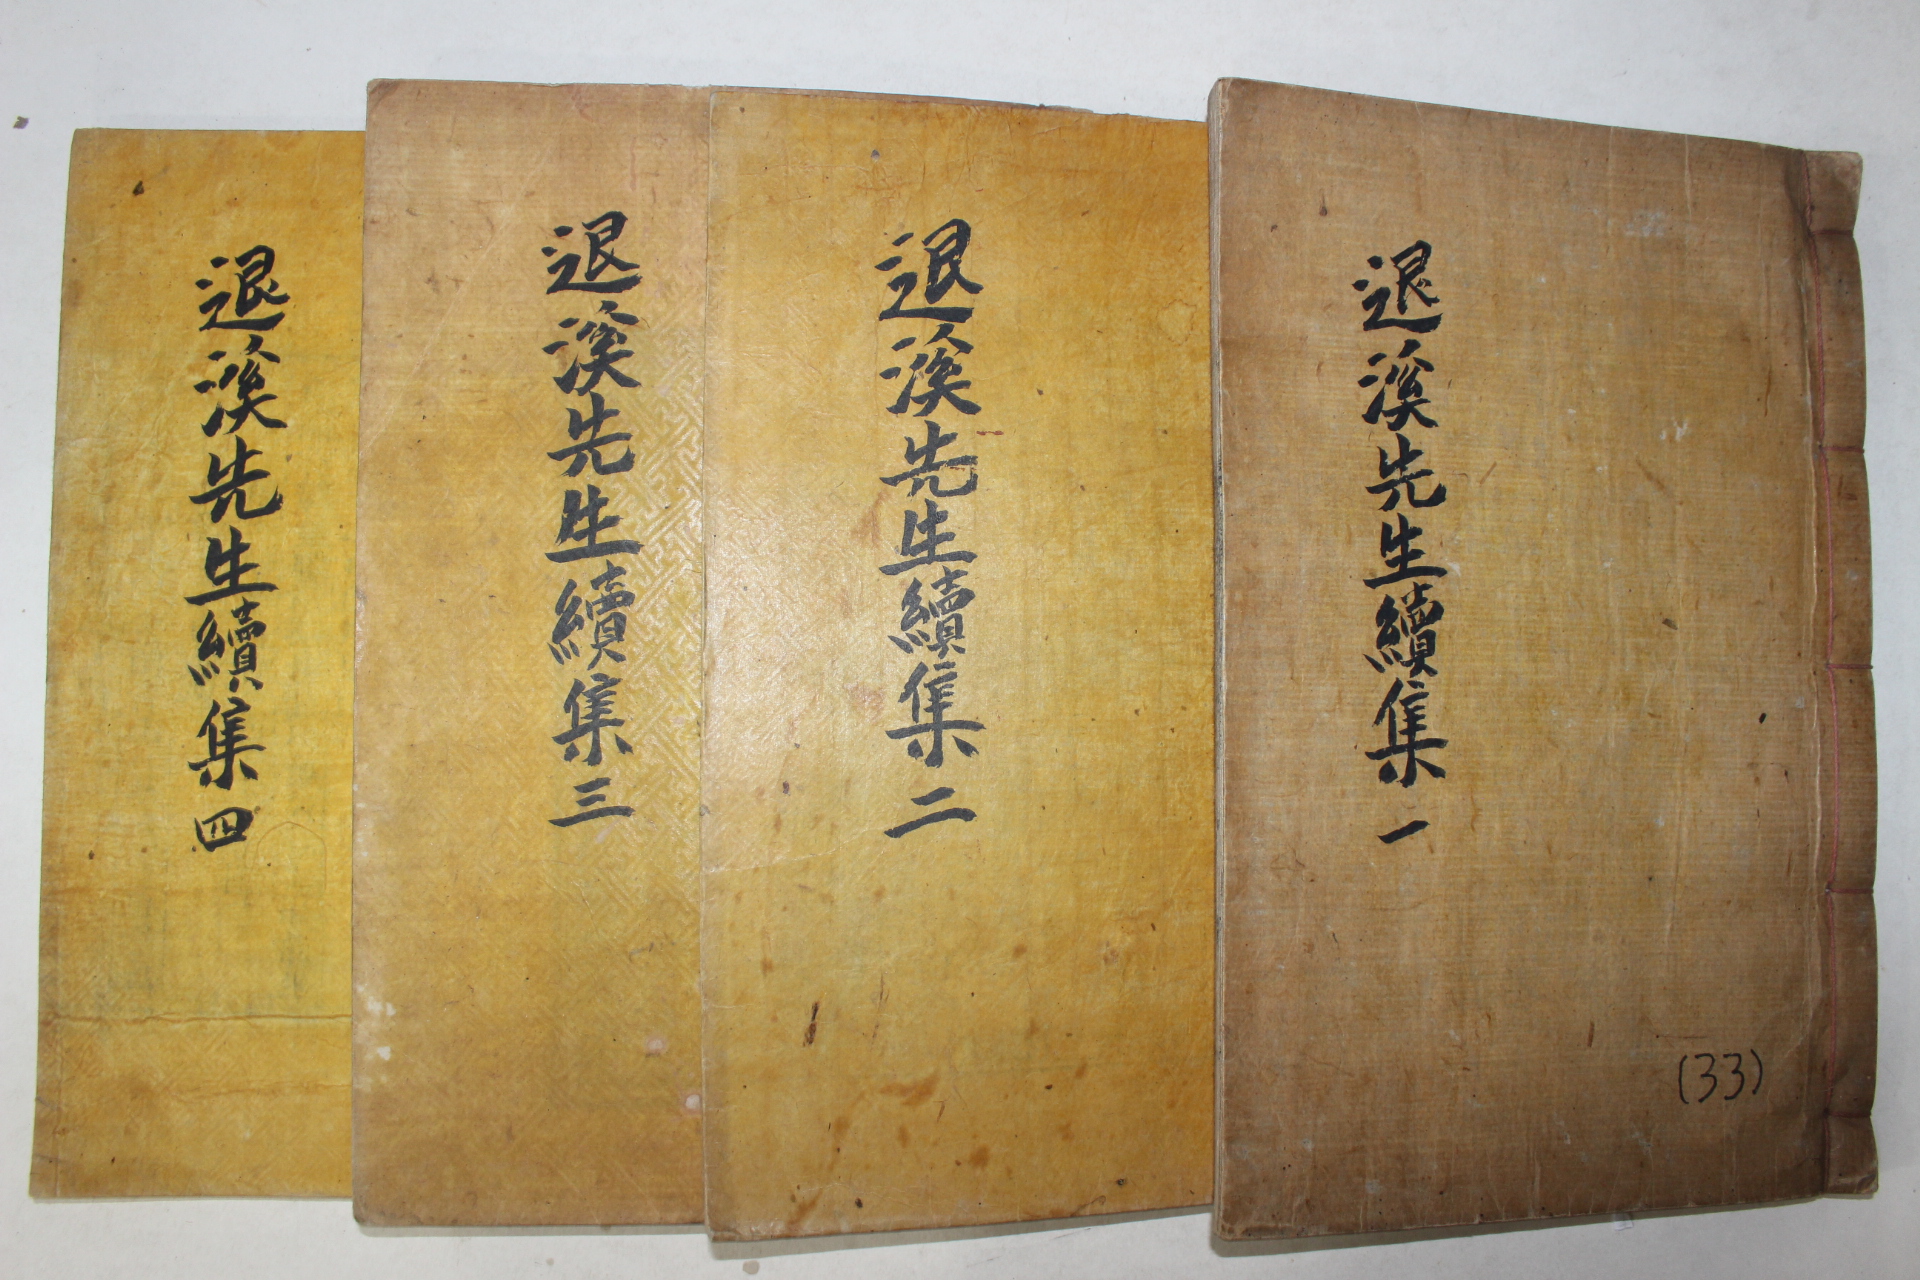 退溪先生續集一
(33)
退溪先生續集二
退溪先生續集三
退溪先生續集四